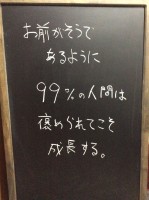 お前がそうで
あるように
99%の人間は
褒められてこそ
成長する。